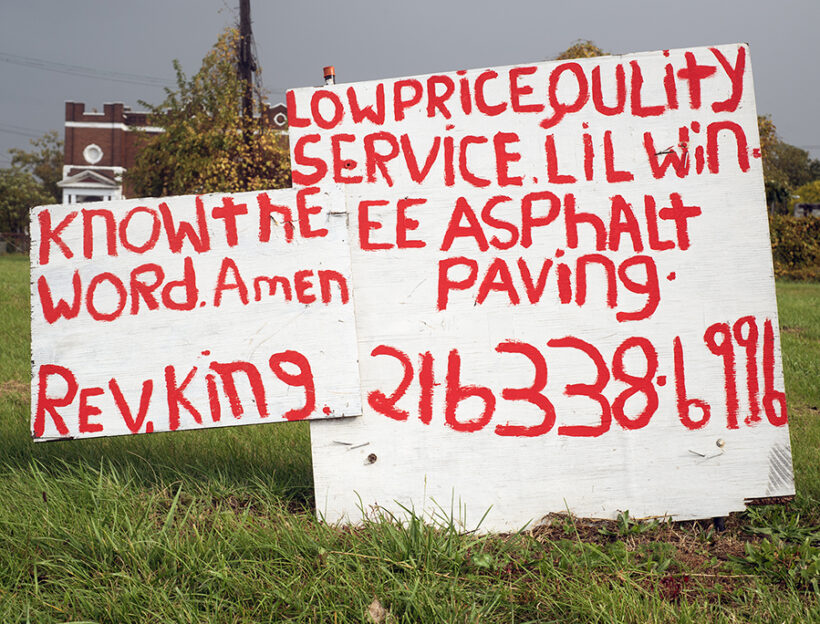 KNOW THE
WORD. Amen
REV. King.
LOW PRICE QULity
SERVICE. LIL Win.
EE ASPhALt
PAVING.
216338.6996